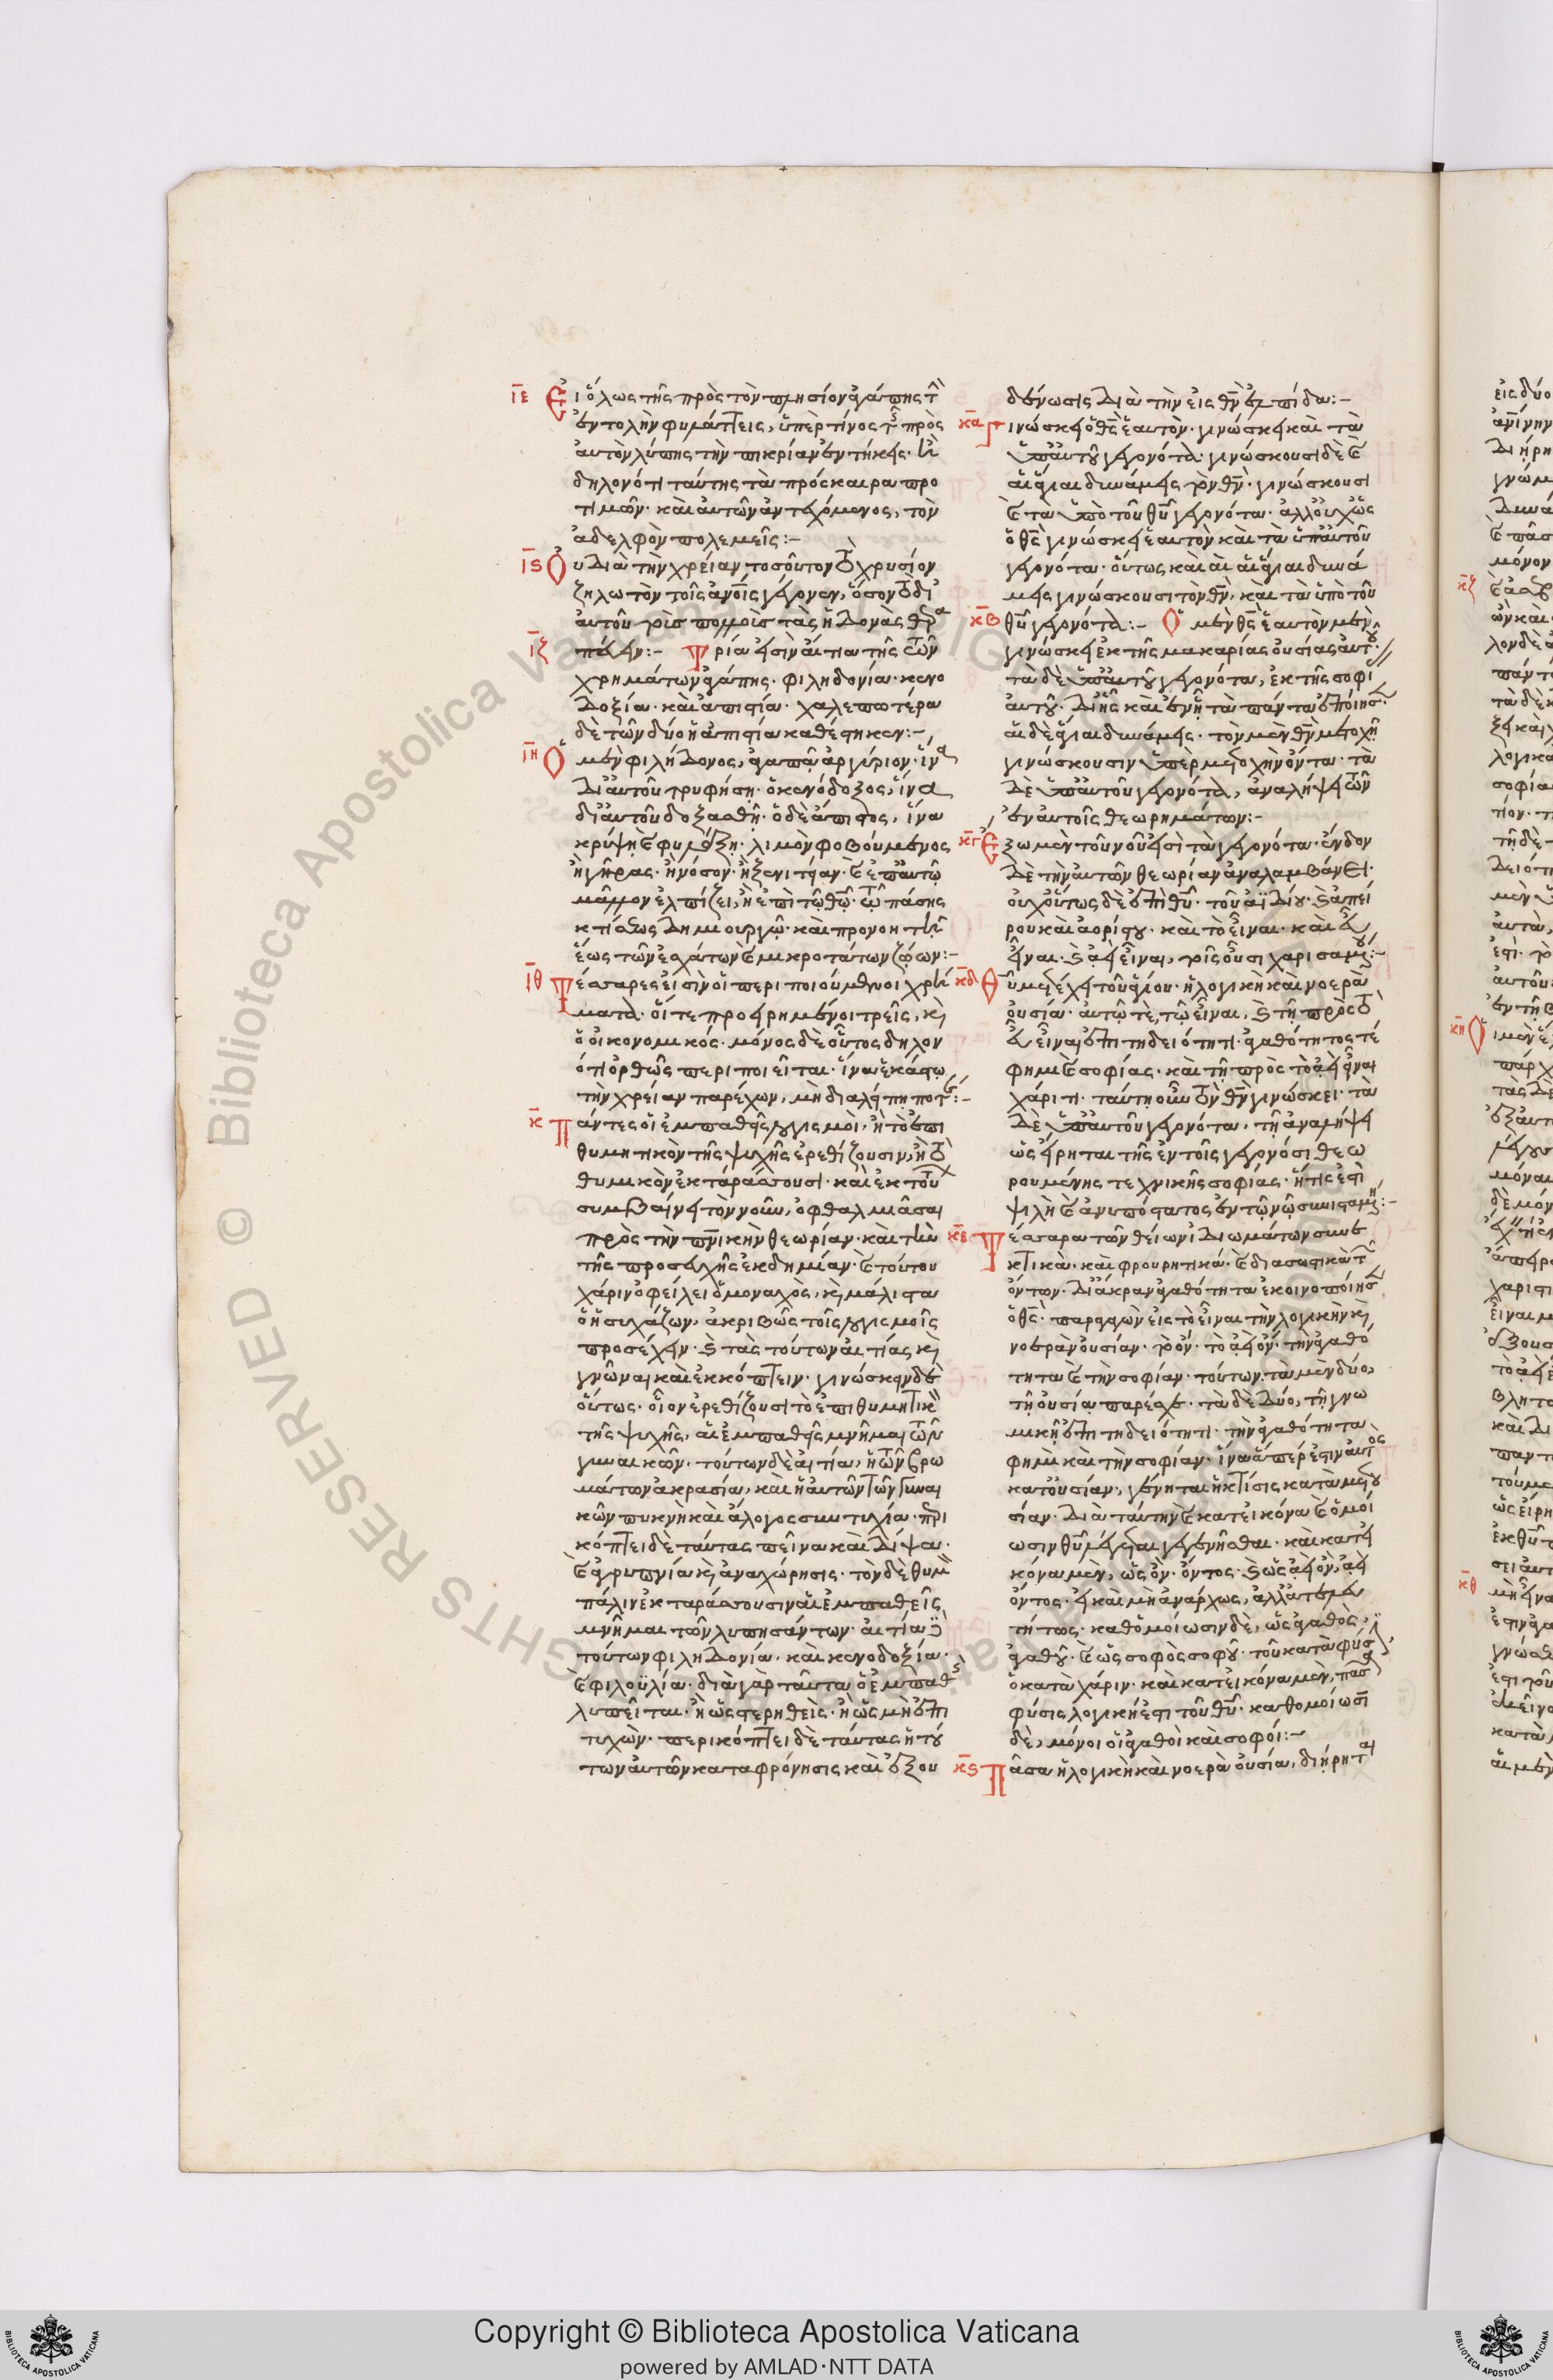 ιε Εἰ ὅλως τῆς πρὸς τὸν πλησίον ἀγάπης τὴν
ἐντολὴν φυλάττεις, ὑπὲρ τίνος τῆς πρὸς
αὐτὸν λύπης τὴν πικρίαν ἐντήκεις· ἢ
δηλονότι ταύτης τὰ πρόσκαιρα προ
τιμῶν· καὶ αὐτῶν ἀντεχόμενος, τὸν
ἀδελφὸν πολεμεῖς:-
ις Οὐ διὰ τὴν χρείαν τοσοῦτον τὸ χρυσίον
ζηλωτὸν τοῖς ἀνοις γέγονεν, ὅσον τὸ δι
αὐτοῦ τοῖς πολλοῖς τὰς ἡδονὰς θερα
πεύειν:-
ιζ Τρία εἰσὶν αἴτια τῆς τῶν
χρημάτων ἀγάπης· φιληδονία· κενο
δοξία· καὶ ἀπιστία· χαλεπωτέρα
δὲ τῶν δύο ἡ ἀπιστία καθέστηκεν:-
ιη Ὁ μὲν φιλήδονος, ἀγαπᾷ ἀργύριον· ἵνα
δι' αὐτοῦ τρυφήσῃ· ὁ κενόδοξος, ἵνα
δι' αὐτοῦ δοξασθῇ· ὁ δὲ ἄπιστος, ἵνα
κρύψῃ καὶ φυλάξῃ· λιμὸν φοβούμενος
ἢ γῆρας· ἢ νόσον· ἢ ξενιτείαν· καὶ ἐπ' αὐτῷ
μᾶλλον ἐλπίζει, ἢ ἐπὶ τῷ θῷ· τῷ πάσης
κτίσεως δημιουργῷ· καὶ προνοητῇ
ἕως τῶν ἐσχάτων καὶ μικροτάτων ζῴων:-
ιθ Τέσσαρες εἰσὶν οἱ περιποιούμενοι χρή
ματα· οἵ τε προειρημένοι τρεῖς, καὶ
ὁ οἰκονομικός· μόνος δὲ οὗτος δηλον
ότι ὀρθῶς περιποιεῖται· ἵνα ἑκάστῳ
τὴν χρείαν παρέχων, μὴ διαλείπῃ ποτέ:-
κ Πάντες οἱ ἐμπαθεῖς λογισμοὶ, ἢ τὸ ἐπι
θυμητικὸν τῆς ψυχῆς ἐρεθίζουσιν, ἢ τὸ
θυμικὸν ἐκταράσσουσι· καὶ ἐκ τούτου
συμβαίνει τὸν νοῦν, ὀφθαλμιᾶσαι
πρὸς τὴν πνικὴν θεωρίαν· καὶ τὴν
τῆς προσευχῆς ἐκδημίαν· καὶ τούτου
χάριν ὀφείλει ὁ μοναχὸς, καὶ μάλιστα
ὁ ἡσυχάζων, ἀκριβῶς τοῖς λογισμοῖς
προσέχειν· καὶ τὰς τούτων αἰτίας καὶ
γνῶναι καὶ ἐκκόπτειν· γινώσκειν δὲ
οὕτως· οἷον ἐρεθίζουσι τὸ ἐπιθυμητικὸν
τῆς ψυχῆς, αἱ ἐμπαθεῖς μνῆμαι τῶν
γυναικῶν· τούτων δὲ αἰτία, ἡ τῶν βρω
μάτων ἀκρασία, καὶ ἡ αὐτῶν τῶν γυναι
κῶν πυκνὴ καὶ ἄλογος συντυχία· περι
κόπτει δὲ ταύτας πεῖνα καὶ δίψα·
καὶ ἀγρυπνία καὶ ἀναχώρησις· τὸν δὲ θυμὸν
πάλιν ἐκταράσσουσιν αἱ ἐμπαθεῖς
μνῆμαι τῶν λυπησάντων· αἰτία δὲ
τούτων φιληδονία· καὶ κενοδοξία·
καὶ φιλοϋλία· διὰ γὰρ ταῦτα ὁ ἐμπαθὴς
λυπεῖται· ἢ ὡς στερηθεὶς· ἢ ὡς μὴ ἐπι
τυχών· περικόπτει δὲ ταύτας ἡ τού
των αὐτῶν καταφρόνησις καὶ ἐξου
δένωσις διὰ τὴν εἰς θν ἐλπίδα:-
κα Γινώσκει ὁ θς ἑαυτὸν· γινώσκει καὶ τὰ
ὑπ' αὐτοῦ γεγονότα· γινώσκουσι δὲ καὶ
αἱ ἅγιαι δυνάμεις τὸν θν· γινώσκουσι
καὶ τὰ ὑπὸ τοῦ θυ γεγονότα· ἀλλ' οὐχ ὡς
ὁ θς γινώσκει ἑαυτὸν καὶ τὰ ὑπ' αὐτοῦ
γεγονότα· οὕτως καὶ αἱ ἅγιαι δυνά
μεις γινώσκουσι τὸν θν, καὶ τὰ ὑπὸ τοῦ
θυ γεγονότα:-
κβ Ὁ μὲν θς ἑαυτὸν μὲν
γινώσκει ἐκ τῆς μακαρίας οὐσίας αὐτοῦ·
τὰ δὲ ὑπ' αὐτοῦ γεγονότα, ἐκ τῆς σοφίας
αὐτοῦ· δι' ἧς καὶ ἐν ᾗ τὰ πάντα ἐποίησεν·
αἱ δὲ ἅγιαι δυνάμεις· τὸν μὲν θν μετοχῇ
γινώσκουσιν ὑπὲρ μετοχὴν ὄντα· τὰ
δὲ ὑπ' αὐτοῦ γεγονότα, ἀναλήψει τῶν
ἐν αὐτοῖς θεωρημάτων:-
κγ Ἔξω μὲν τοῦ νοῦ εἰσὶ τὰ γεγονότα· ἔνδον
δὲ τὴν αὐτῶν θεωρίαν ἀναλαμβάνει·
οὐχ οὕτως δὲ ἐπὶ θυ· τοῦ ἀϊδίου· καὶ ἀπεί
ρου καὶ ἀορίστου· καὶ τὸ εἶναι· καὶ εὖ
εἶναι· καὶ ἀεὶ εἶναι, τοῖς οὖσι χαρισαμένου:-
κδ Θυ μετέχει τοῦ ἁγίου· ἡ λογικὴ καὶ νοερὰ
οὐσία· αὐτῷ τε, τῷ εἶναι, καὶ τῇ πρὸς τὸ
εὖ εἶναι ἐπιτηδειότητι· ἀγαθότητός τέ
φημι καὶ σοφίας· καὶ τῇ πρὸς τὸ ἀεὶ εἶναι
χάριτι· ταύτῃ οὖν τὸν θν γινώσκει· τὰ
δὲ ὑπ' αὐτοῦ γεγονότα, τῇ ἀναλήψει
ὡς εἴρηται τῆς ἐν τοῖς γεγονόσι θεω
ρουμένης τεχνικῆς σοφίας· ἥτις ἐστὶ
ψιλὴ καὶ ἀνυπόστατος ἐν τῷ νῷ συνισταμένη:-
κε Τέσσαρα τῶν θείων ἰδιωμάτων συνε
κτικὰ· καὶ φρουρητικά· καὶ διασωστικὰ τῶν
ὄντων· δι' ἄκραν ἀγαθότητα ἐκοινοποίησεν
ὁ θς· παραγαγὼν εἰς τὸ εἶναι τὴν λογικὴν καὶ
νοερὰν οὐσίαν· τὸ ὄν· τὸ ἀεὶ ὄν· τὴν ἀγαθό
τητα καὶ τὴν σοφίαν· τούτων τὰ μὲν δύο,
τῇ οὐσίᾳ παρέσχε· τὰ δὲ δύο, τῇ γνω
μικῇ ἐπιτηδειότητι· τὴν ἀγαθότητα
φημὶ καὶ τὴν σοφίαν· ἵνα ἅπέρ ἐστιν αὐτὸς
κατ' οὐσίαν, γένηται ἡ κτίσις κατὰ μετου
σίαν· διὰ ταύτην καὶ κατ' εἰκόνα καὶ ὁμοί
ωσιν θυ λέγεται γεγενῆσθαι· καὶ κατ' εἰ
κόνα μὲν, ὡς ὂν· ὄντος· καὶ ὡς ἀεὶ ὂν, ἀεὶ
ὄντος· εἰ καὶ μὴ ἀνάρχως, ἀλλ' ἀτελευ
τήτως· καθ' ὁμοίωσιν δὲ, ὡς ἀγαθὸς, ἀ
γαθοῦ· καὶ ὡς σοφὸς σοφοῦ· τοῦ κατὰ φύσιν
ὁ κατὰ χάριν· καὶ κατ' εἰκόνα μὲν, πᾶσα
φύσις λογική ἐστι τοῦ θυ· καθ' ὁμοίωσιν
δὲ, μόνοι οἱ ἀγαθοὶ καὶ σοφοί:-
κς Πᾶσα ἡ λογικὴ καὶ νοερὰ οὐσία, διῄρηται
Copyright © Biblioteca Apostolica Vaticana
powered by AMLAD·NTT DATA
© Biblioteca Apostolica Vaticana